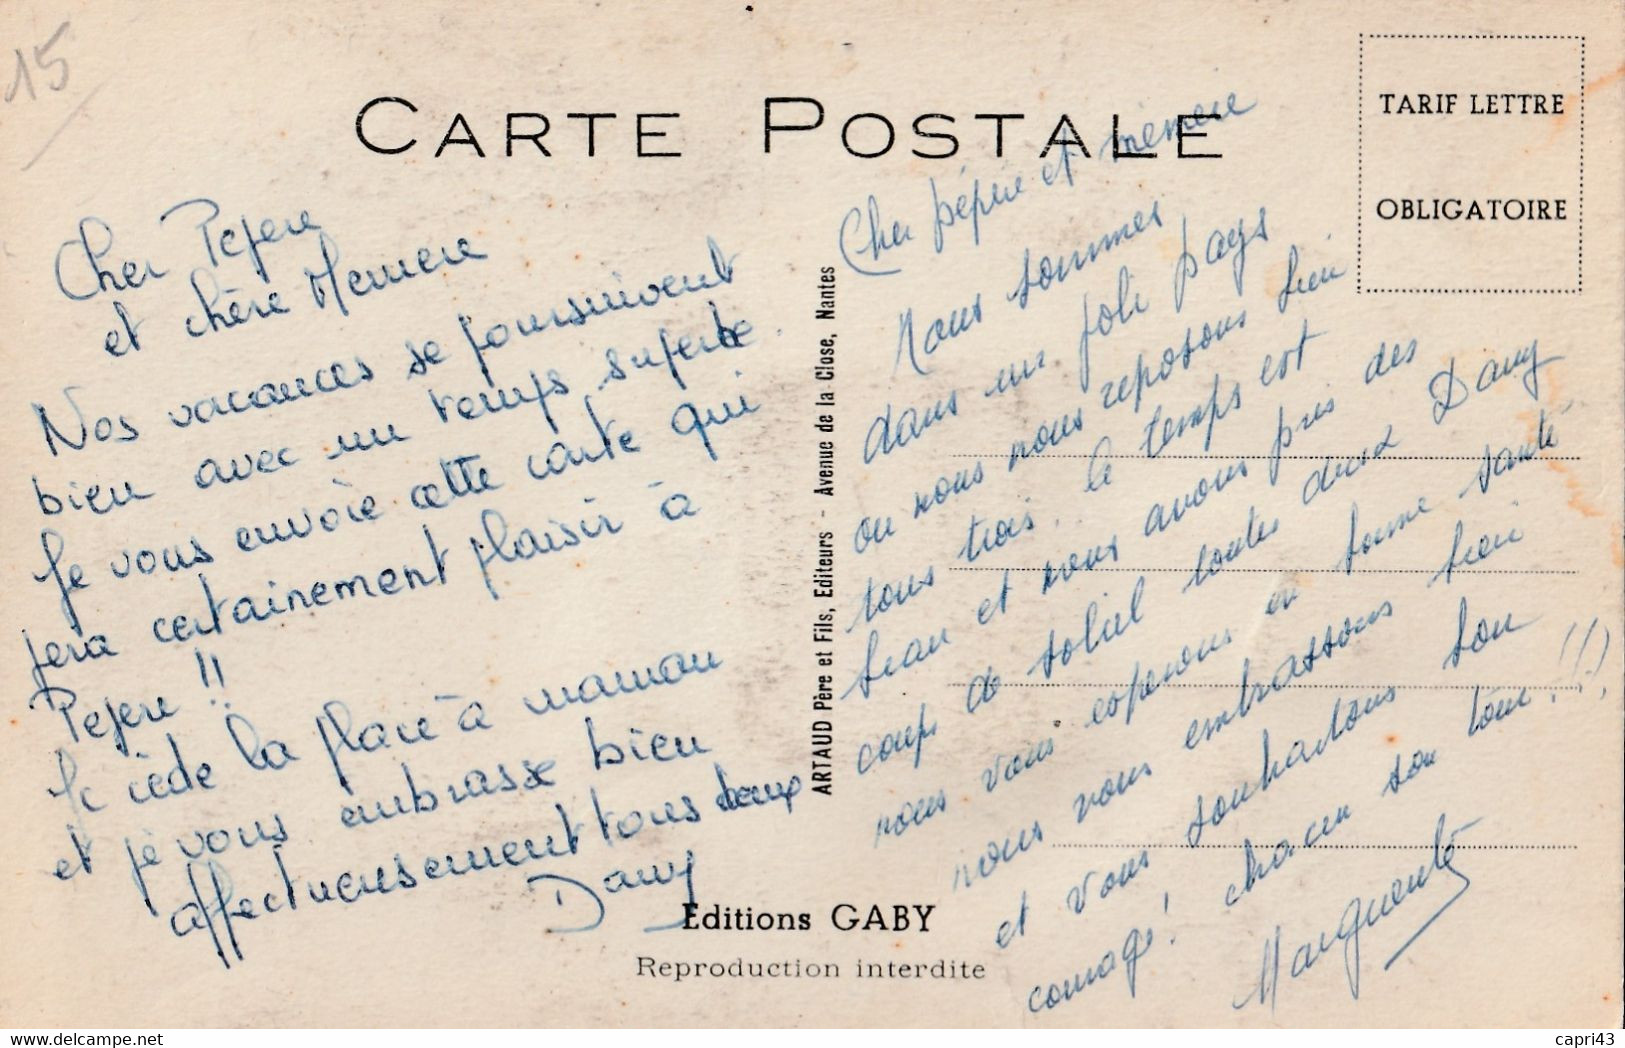 15
CARTE POSTALE
TARIF LETTRE
OBLIGATOIRE
Cher Pepere
et chère Memere
Nos vacances se poursuivent
bien avec un temps superbe.
Je vous envoie cette carte qui
fera certainement plaisir à
Pepere !!
Je cède la place à maman
et je vous embrasse bien
affectueusement tous deux
Dany
ARTAUD Père et Fils, Editeurs - Avenue de la Close, Nantes
Cher pépère et mémère
Nous sommes
dans un joli pays
ou nous nous reposons bien
tous trois. le temps est
beau et nous avons pris des
coups de soleil toutes deux Dany
nous vous esperons en bonne santé
nous vous embrassons bien
et vous souhaitons bon
courage! chacun son tour!!!
Marguerite
Editions GABY
Reproduction interdite
delcampe.net
capri43